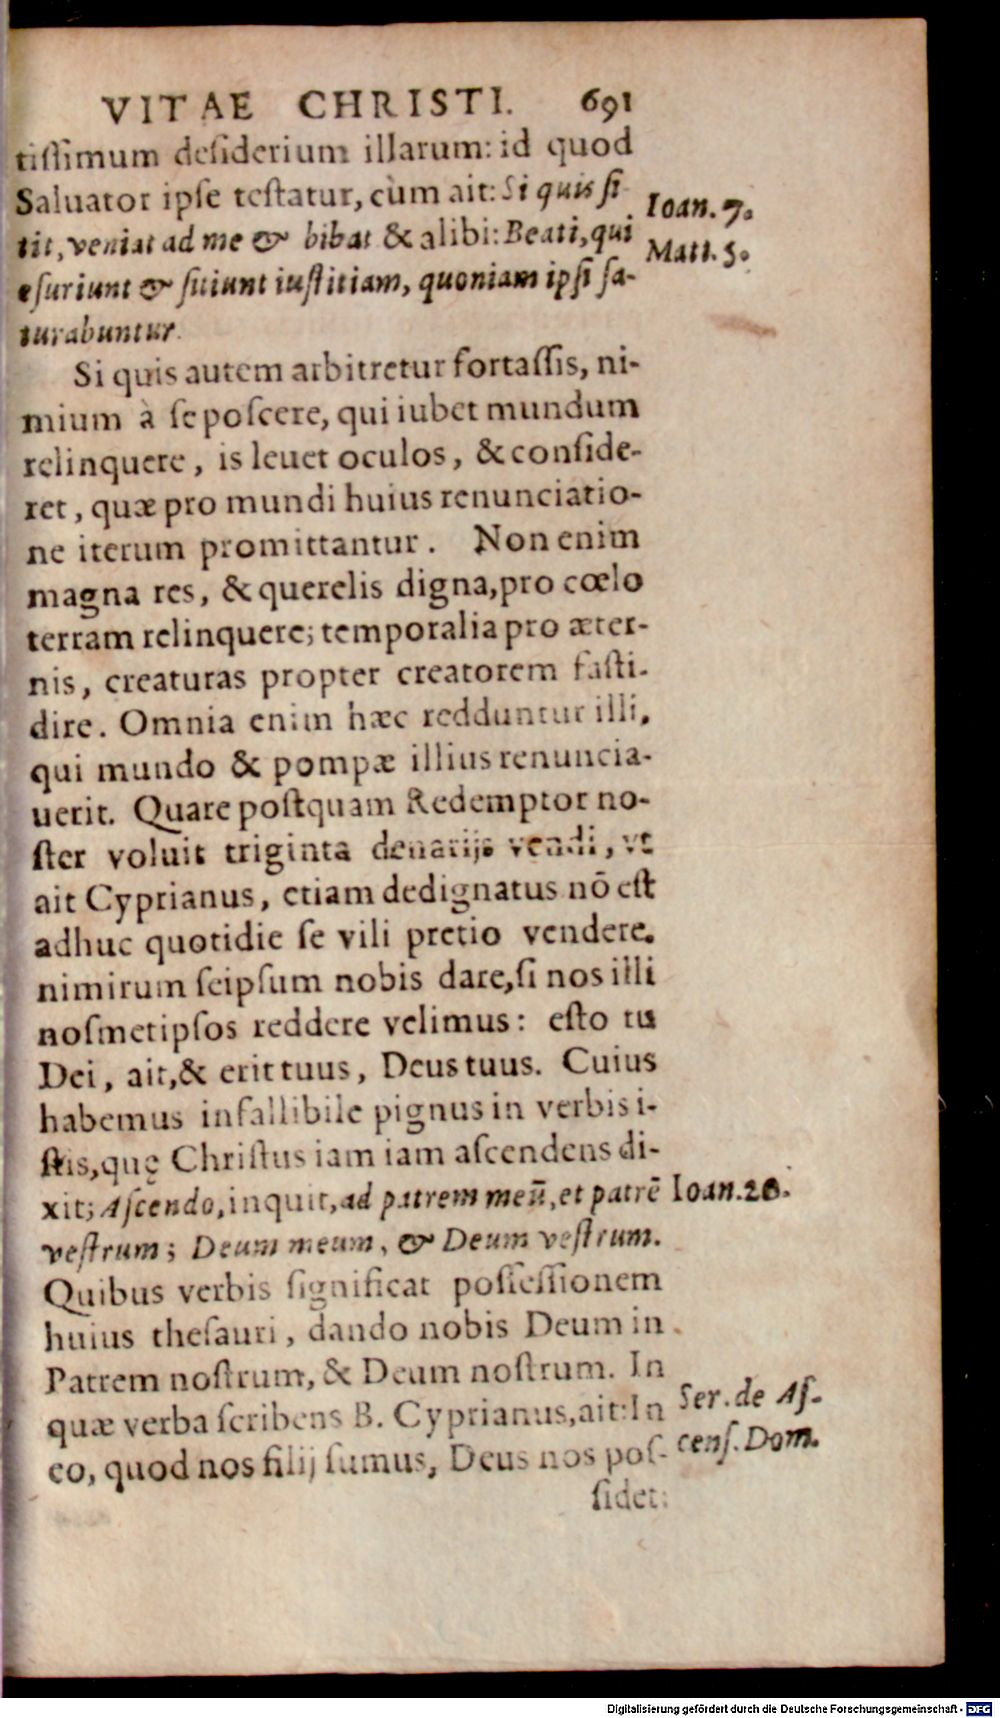 VITAE CHRISTI. 691
tissimum desiderium illarum: id quod
Saluator ipse testatur, cùm ait: Si quis si
tit, veniat ad me & bibat & alibi: Beati, qui
esuriunt & sitiunt iustitiam, quoniam ipsi sa-
turabuntur.
Ioan. 7.
Matt. 5.
Si quis autem arbitretur fortassis, ni-
mium à se poscere, qui iubet mundum
relinquere, is leuet oculos, & conside-
ret, quæ pro mundi huius renunciatio-
ne iterum promittantur. Non enim
magna res, & querelis digna, pro cœlo
terram relinquere; temporalia pro æter-
nis, creaturas propter creatorem fasti-
dire. Omnia enim hæc redduntur illi,
qui mundo & pompæ illius renuncia-
uerit. Quare postquam Redemptor no-
ster voluit triginta denarijs vendi, vt
ait Cyprianus, etiam dedignatus nō est
adhuc quotidie se vili pretio vendere.
nimirum seipsum nobis dare, si nos illi
nosmetipsos reddere velimus: esto tu
Dei, ait, & erit tuus, Deus tuus. Cuius
habemus infallibile pignus in verbis i-
stis, quę Christus iam iam ascendens di-
xit; Ascendo, inquit, ad patrem meū, et patrē
vestrum; Deum meum, & Deum vestrum.
Ioan. 20.
Quibus verbis significat possessionem
huius thesauri, dando nobis Deum in
Patrem nostrum, & Deum nostrum. In
quæ verba scribens B. Cyprianus, ait: In
eo, quod nos filij sumus, Deus nos pos-
sidet:
Ser. de As-
cens. Dom.
Digitalisierung gefördert durch die Deutsche Forschungsgemeinschaft - DFG